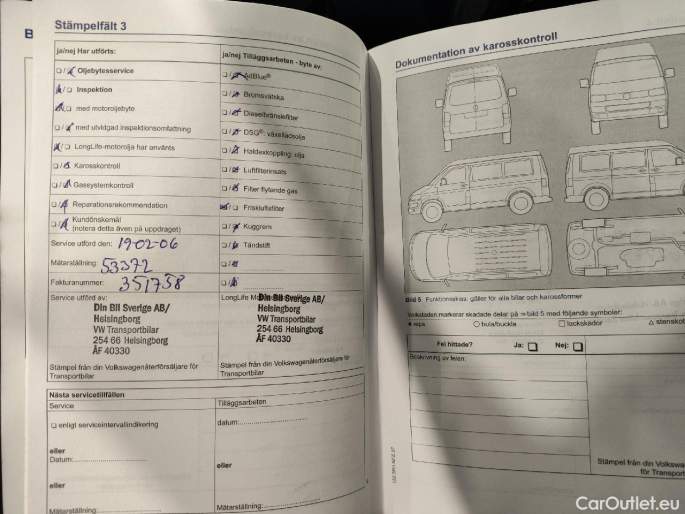 Stämpelfält 3
ja/nej Har utförts:
Oljebytesservice
Inspektion
med motoroljebyte
med utvidgad inspektionsomfattning
LongLife-motorolja har använts
Karosskontroll
Gassystemkontroll
Reparationsrekommendation
Kundönskemål
(notera detta även på uppdraget)
Service utförd den: 19-02-06
Mätarställning: 53372
Fakturanummer: 351758
Service utförd av:
Din Bil Sverige AB/
Helsingborg
VW Transportbilar
254 66 Helsingborg
ÅF 40330
Stämpel från din Volkswagenåterförsäljare för
Transportbilar
ja/nej Tilläggsarbeten - byte av:
AdBlue®
Bromsvätska
Dieselbränslefilter
DSG®: växellådsolja
Haldexkoppling: olja
Luftfilterinsats
Filter flytande gas
Friskluftsfilter
Kuggrem
Tändstift
LongLife
Din Bil Sverige AB/
Helsingborg
VW Transportbilar
254 66 Helsingborg
ÅF 40330
Stämpel från din Volkswagenåterförsäljare för
Transportbilar
Nästa servicetillfällen
Service
enligt serviceintervallindikering
eller
Datum:
eller
Mätarställning:
Tilläggsarbeten
datum:
eller
Mätarställning:
Dokumentation av karosskontroll
Bild 5 Funktionsskiss: gäller för alla bilar och karossformer
Verkstaden markerar skadade delar på → bild 5 med följande symboler:
repa
○ bula/buckla
□ lackskador
△ stenskott
Fel hittade? Ja: Nej:
Beskrivning av felen:
Stämpel från din
för Transport
CarOutlet.eu